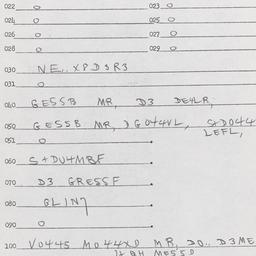 022 O 023 O
024 O 025 O
026 O 027 O
028 O 029 O
030 NE.. XPDSR3
031 O
040 GESSB MR, D3 DE4LR,
050 GESSB MR, JG044VL, S2D044
LEFL,
051 O
060 S+DU4MBF
070 D3 GRESSF
080 GLIN7
090 O
100 V0445 M044XD MR, DO.. D3ME